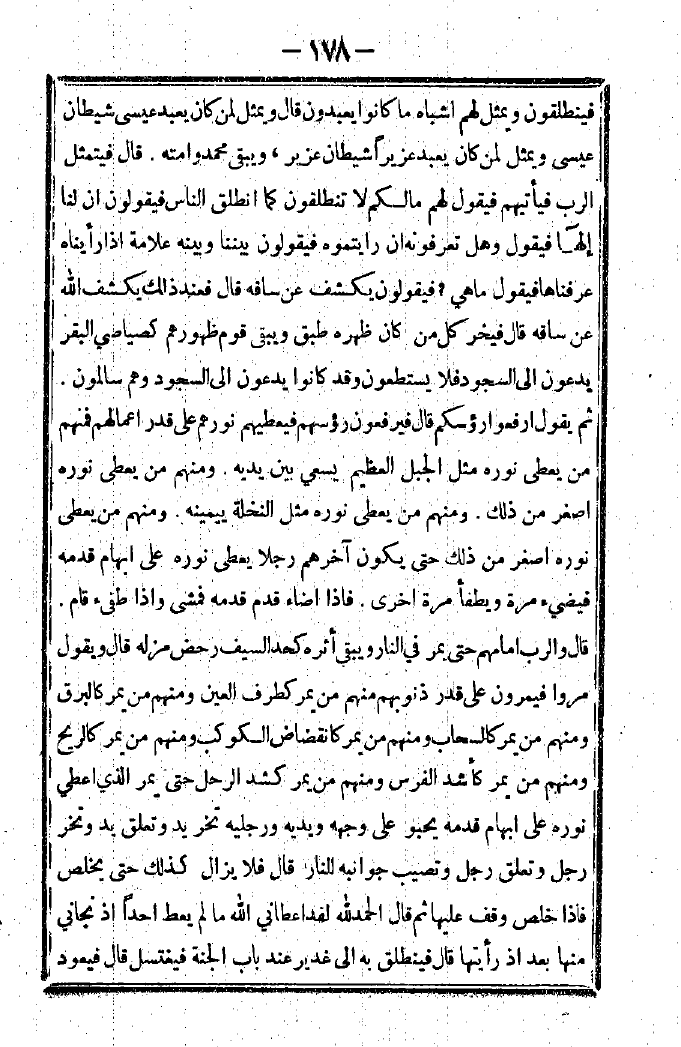 — ١٧٨ —
فينطلقون ويمثل لهم اشباه ما كانوا يعبدون قال ويمثل لمن كان يعبد عيسى شيطان
عيسى ويمثل لمن كان يعبد عزيراً شيطان عزير ، ويبقى محمد وامته . قال فيتمثل
الرب فيأتيهم فيقول لهم مالكم لا تنطلقون كما انطلق الناس فيقولون ان لنا
إلهاً فيقول وهل تعرفونه ان رايتموه فيقولون بيننا وبينه علامة اذا رأيناه
عرفناها فيقول ماهي ? فيقولون يكشف عن ساقه قال فعند ذلك يكشف الله
عن ساقه قال فيخر كل من كان ظهره طبق ويبقى قوم ظهورهم كصياصي البقر
يدعون الى السجود فلا يستطعون وقد كانوا يدعون الى السجود وهم سالمون .
ثم يقول ارفعوا رؤسكم قال فيرفعون رؤسهم فيعطيهم نورهم على قدر اعمالهم فمنهم
من يعطى نوره مثل الجبل العظيم يسعي بين يديه . ومنهم من يعطى نوره
اصغر من ذلك . ومنهم من يعطى نوره مثل النخلة بيمينه . ومنهم من يعطى
نوره اصغر من ذلك حتى يكون آخرهم رجلا يعطى نوره على ابهام قدمه
فيضيء مرة ويطفأ مرة اخرى . فاذا اضاء قدم قدمه فمشى واذا طفىء قام .
قال والرب امامهم حتى يمر في النار ويبقى أثره كحد السيف رحض مزله قال ويقول
مروا فيمرون على قدر ذنوبهم منهم من يمر كطرف العين ومنهم من يمر كالبرق
ومنهم من يمر كالسحاب ومنهم من يمر كانقضاض الكوكب ومنهم من يمر كالريح
ومنهم من يمر كأشد الفرس ومنهم من يمر كشد الرحل حتى يمر الذي اعطي
نوره على ابهام قدمه يحبو على وجهه ويديه ورجليه تخر يد وتعلق يد وتخر
رجل وتعلق رجل وتصيب جوانبه للنار قال فلا يزال كذلك حتى يخلص
فاذا خلص وقف عليها ثم قال الحمد لله لقد اعطاني الله ما لم يعط احداً اذ نجاني
منها بعد اذ رأيتها قال فينطلق به الى غدير عند باب الجنة فيغتسل قال فيعود